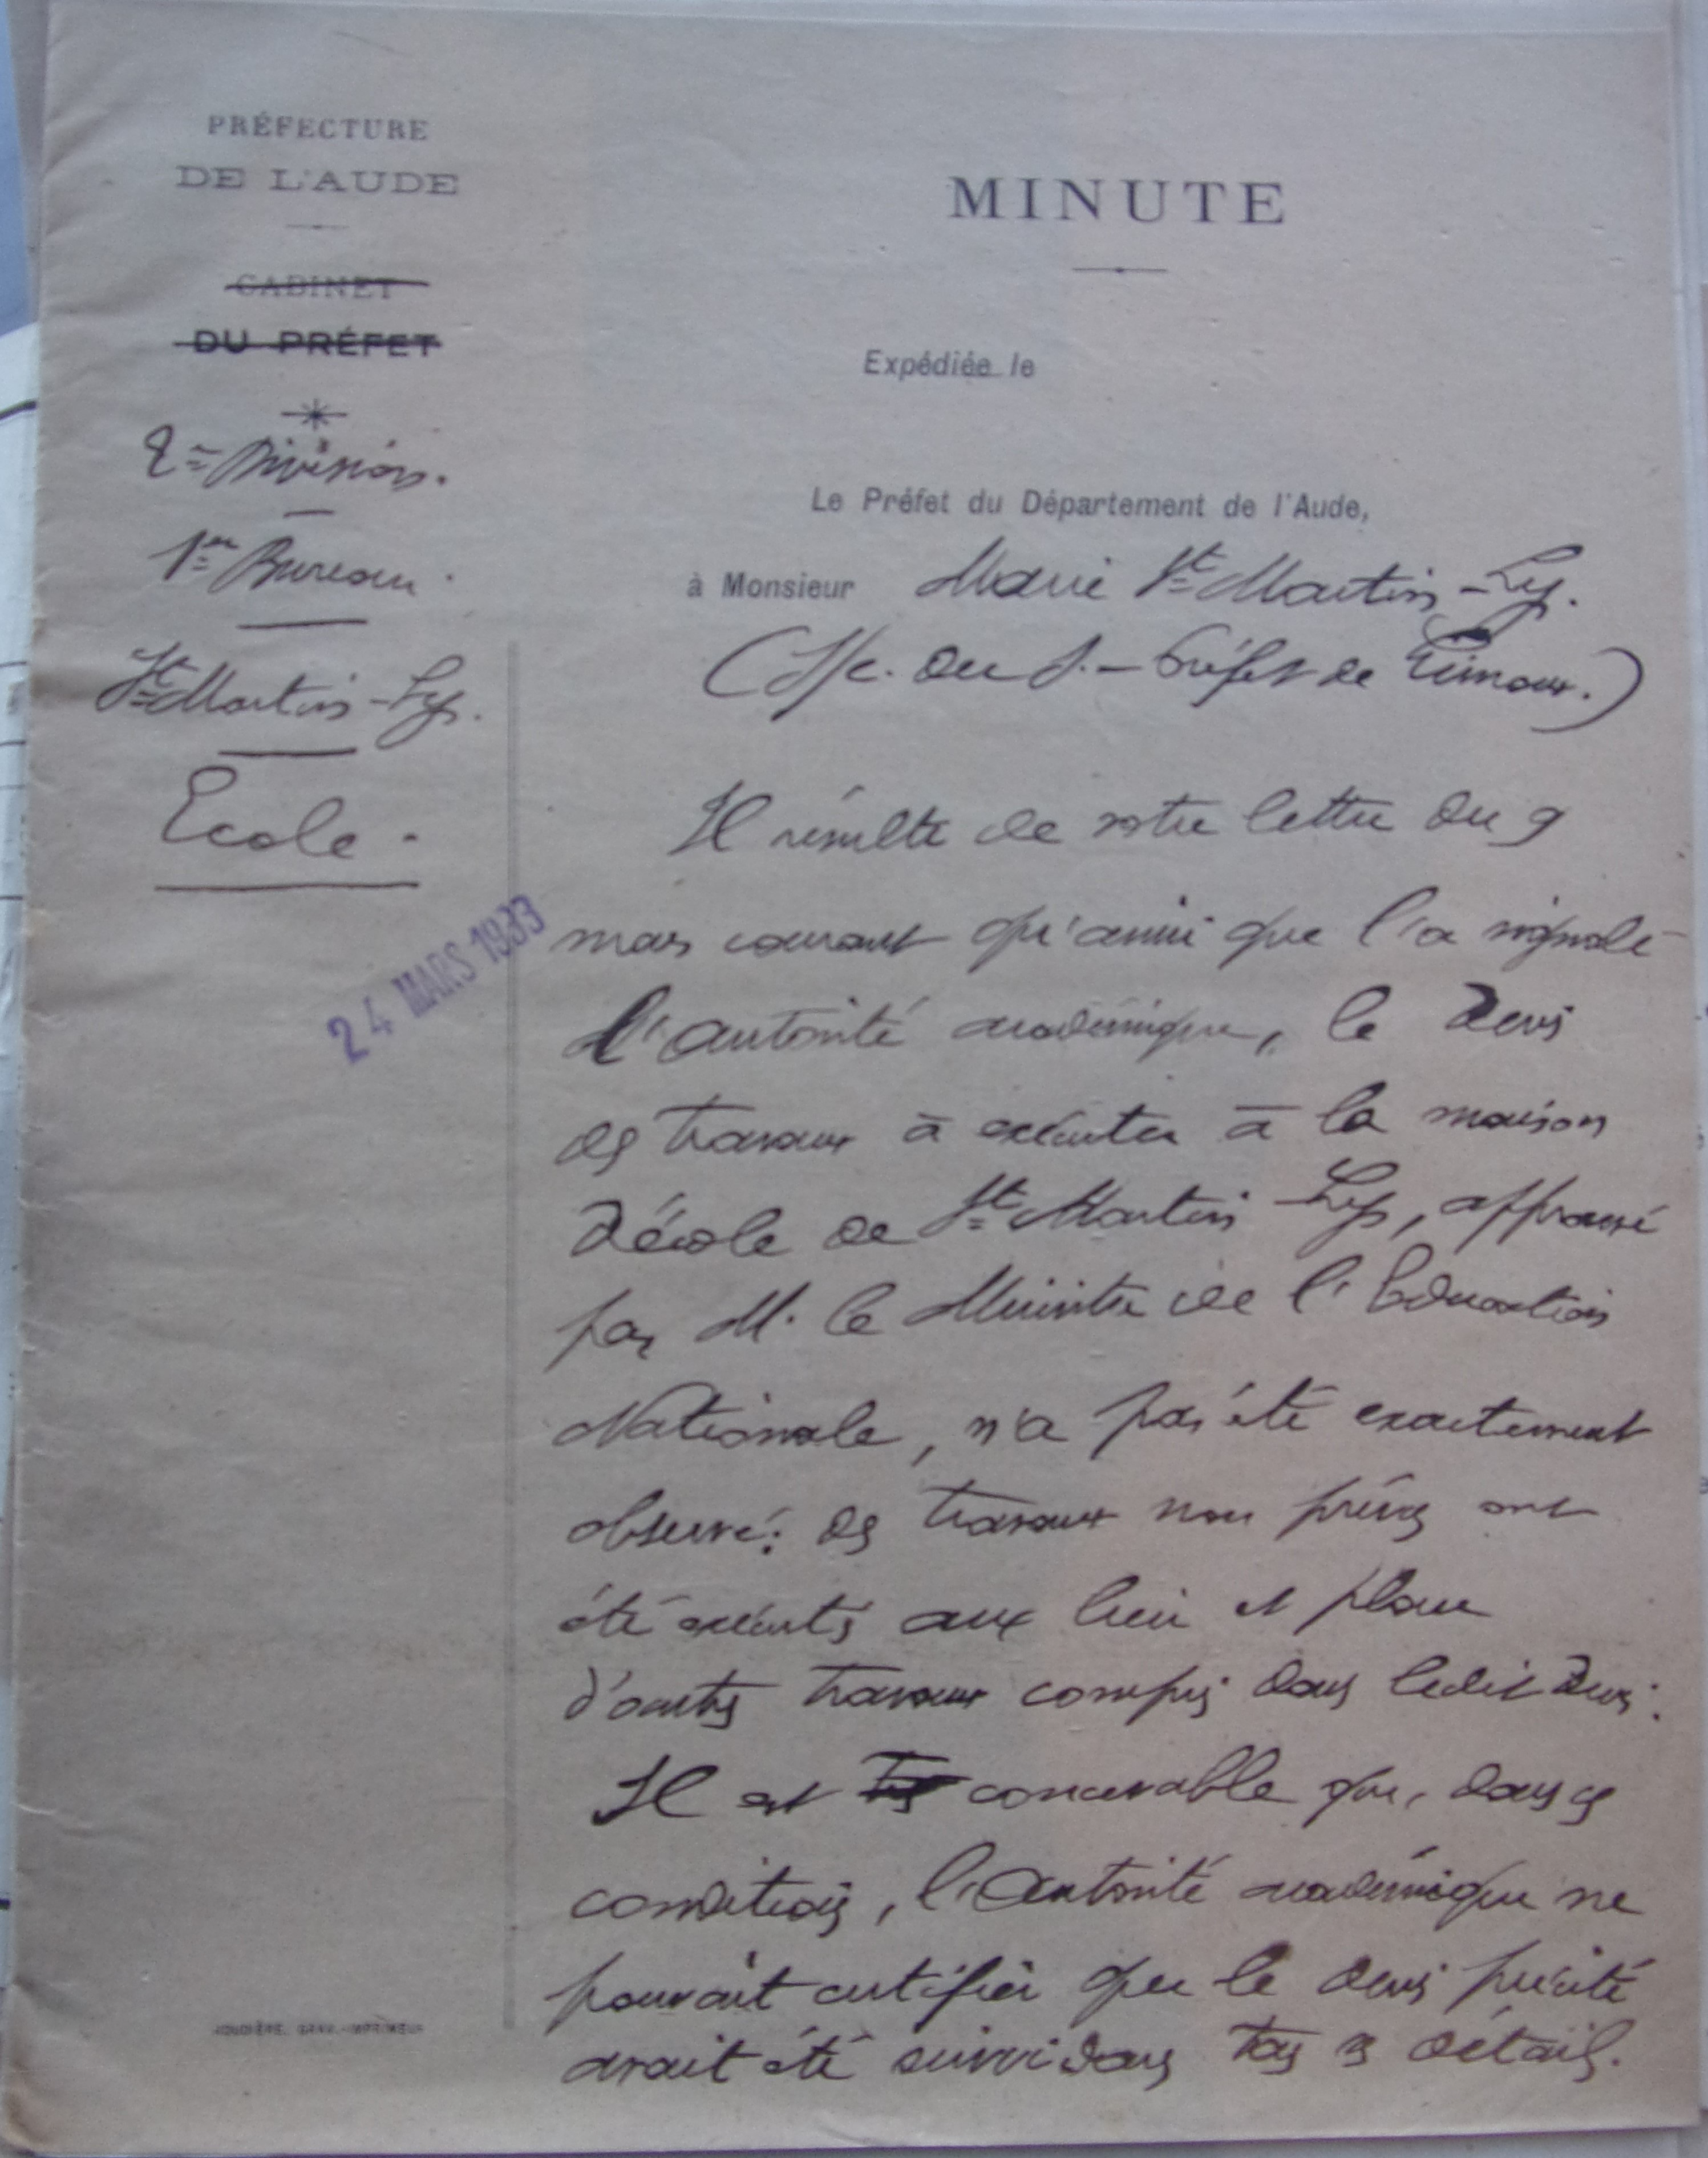 PRÉFECTURE
DE L'AUDE
CABINET
DU PRÉFET
2e Division.
1er Bureau.
St Martin-Lys.
Ecole.
24 MARS 1933
MINUTE
Expédiée le
Le Préfet du Département de l'Aude,
à Monsieur Maire St Martin-Lys.
(S/c. du S.-Préfet de Limoux.)
Il résulte de votre lettre du 9
mars courant qu'ainsi que l'a signalé
l'autorité académique, le devis
des travaux à exécuter à la maison
d'école de St Martin-Lys, approuvé
par M. le Ministre de l'Education
Nationale, n'a pas été exactement
observé: des travaux non prévus ont
été exécutés aux lieu et place
d'autres travaux compris dans ledit devis.
Il est concevable que, dans ces
conditions, l'autorité académique ne
pouvait certifier que le devis précité
avait été suivi dans tous ses détails.
IMPRIMEUR